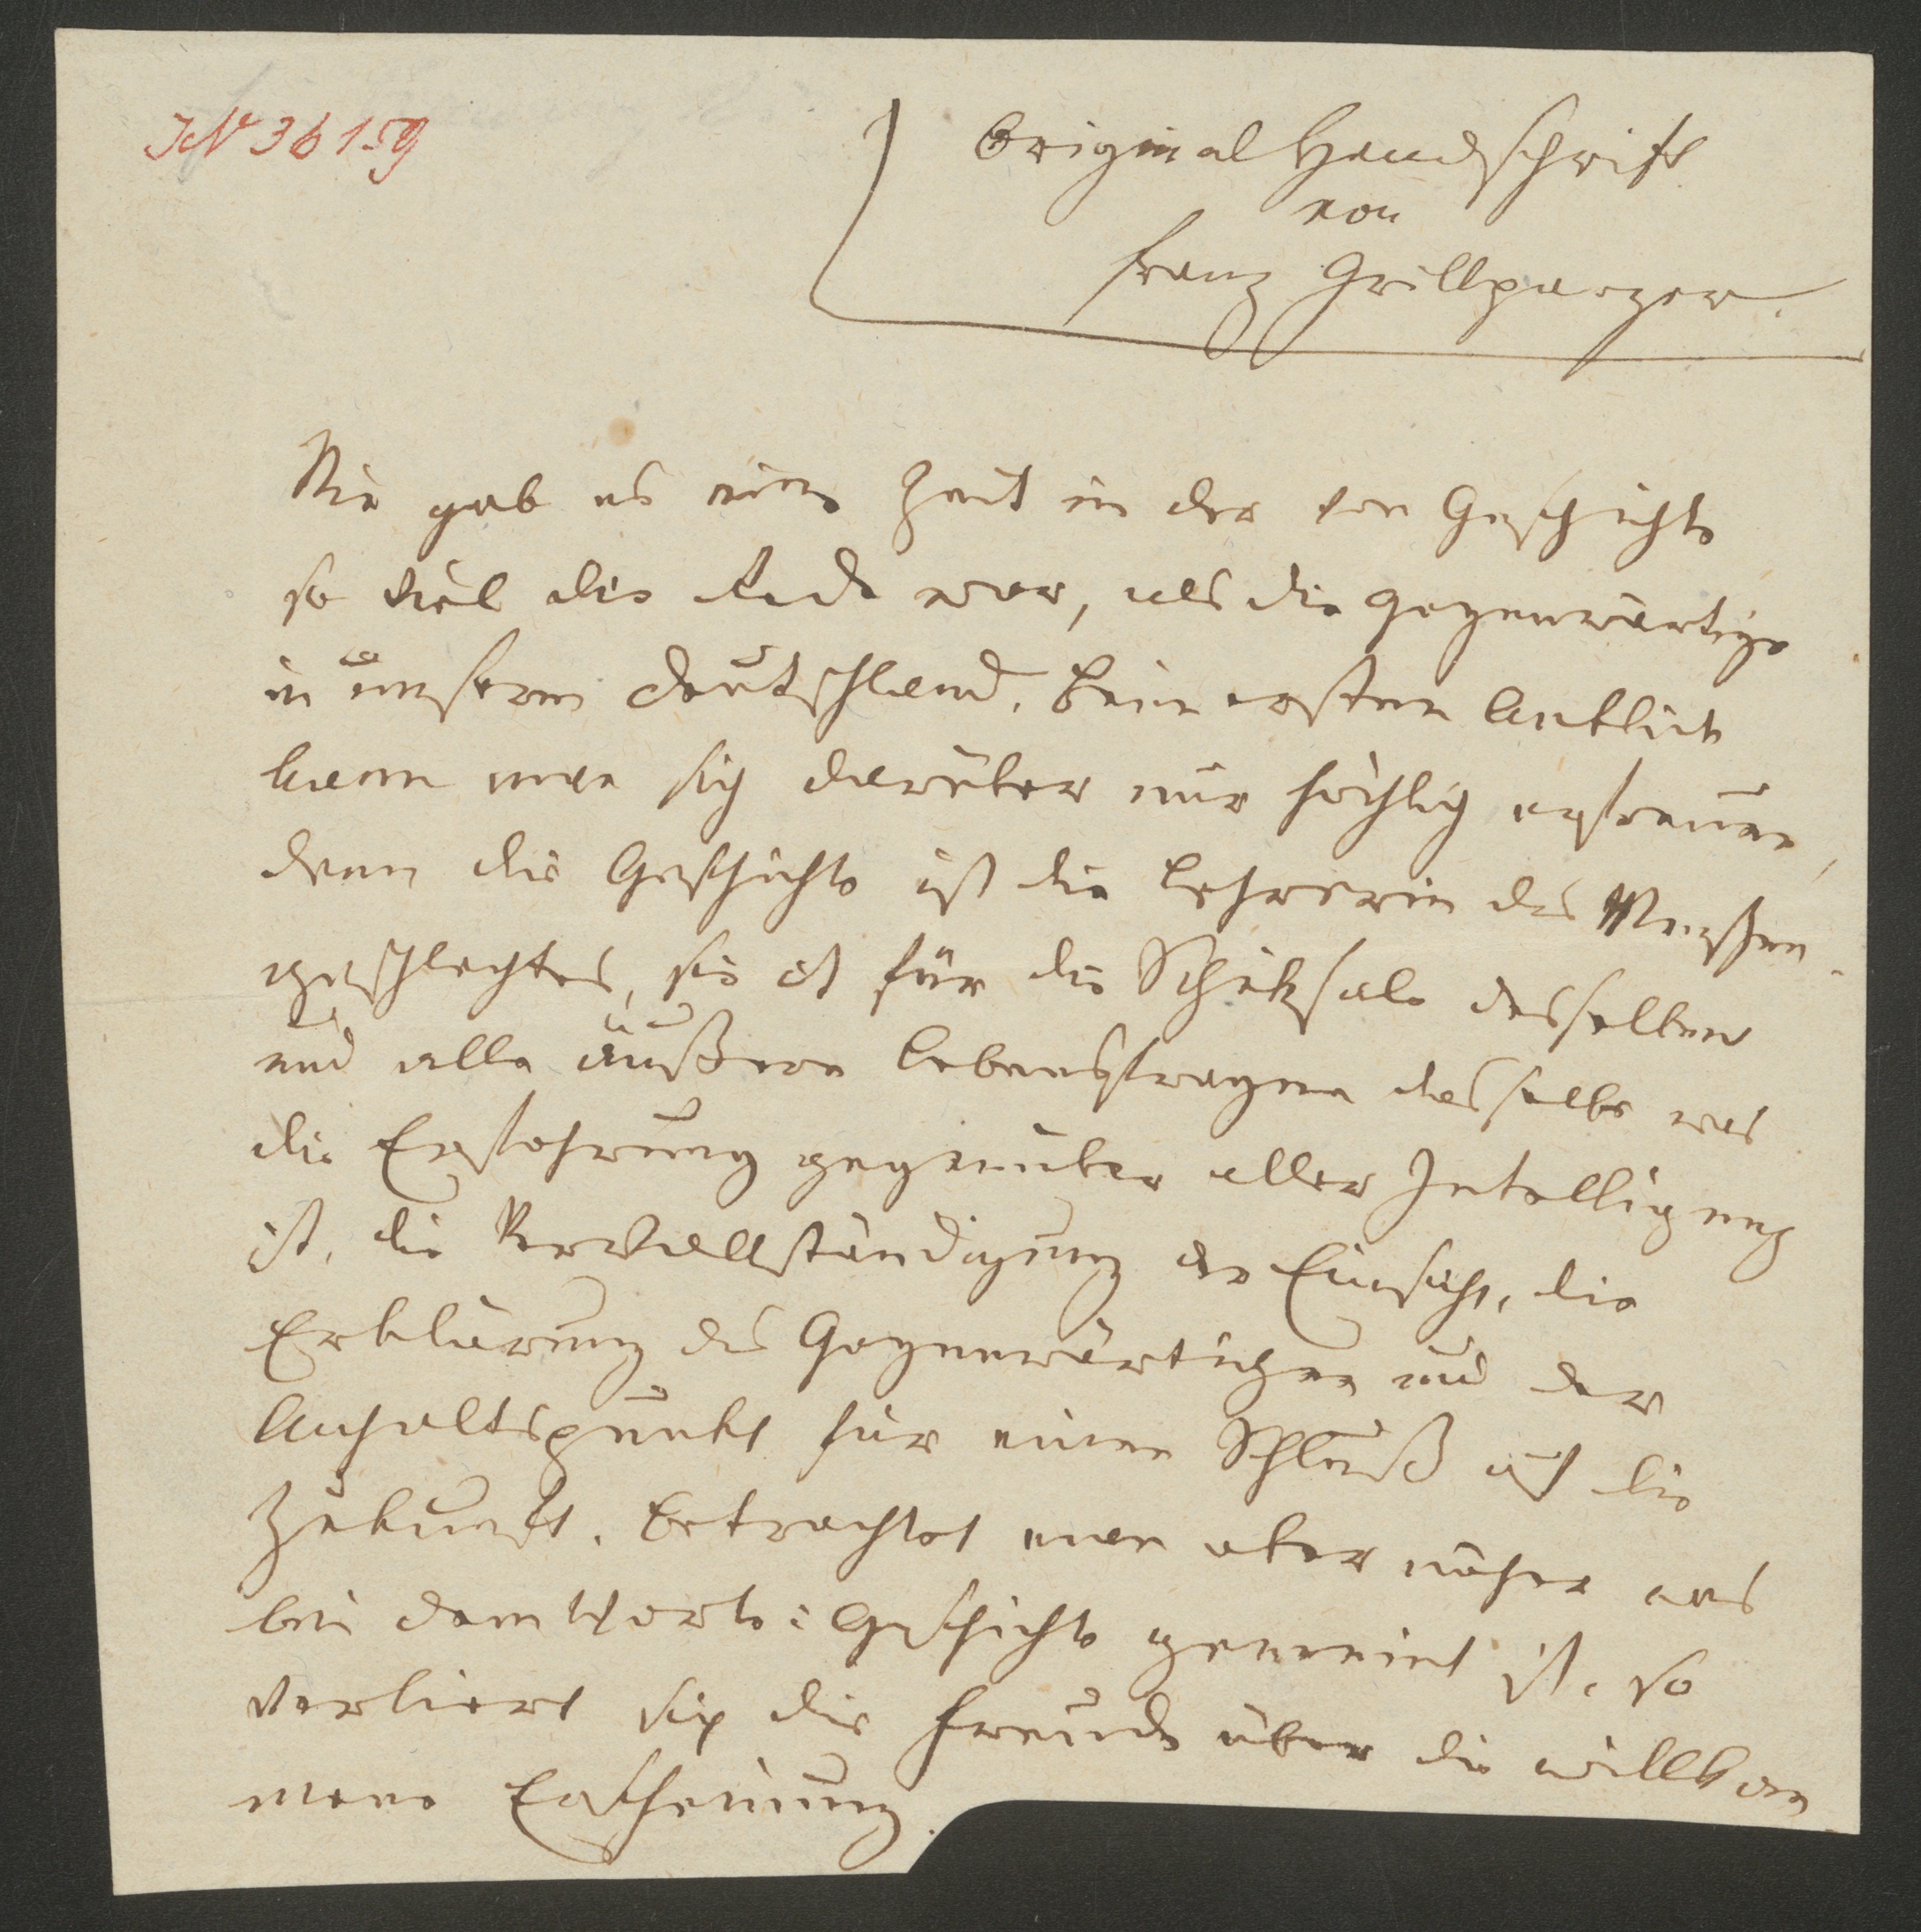 IN 36159
Original Handschrift
von
Franz Grillparzer.
Nie gab es eine Zeit in der von Geschichte
so viel die Rede war, als die gegenwärtige
in unserm Deutschland. Beim ersten Anblick
kann man sich darüber nur höchlich erfreuen,
denn die Geschichte ist die Lehrerin des Menschen-
geschlechtes, sie ist für die Schicksale desselben
und alle äußern Lebensfragen dasselbe was
die Erfahrung gegenüber aller Intelligenz
ist, die Vervollständigung der Einsicht, die
Erklärung des Gegenwärtigen und der
Anhaltspunkt für einen Schluß auf die
Zukunft. Betrachtet man aber näher was
bei dem Worte: Geschichte gemeint ist, so
verliert sich die Freude über die willkom
mene Erscheinung.